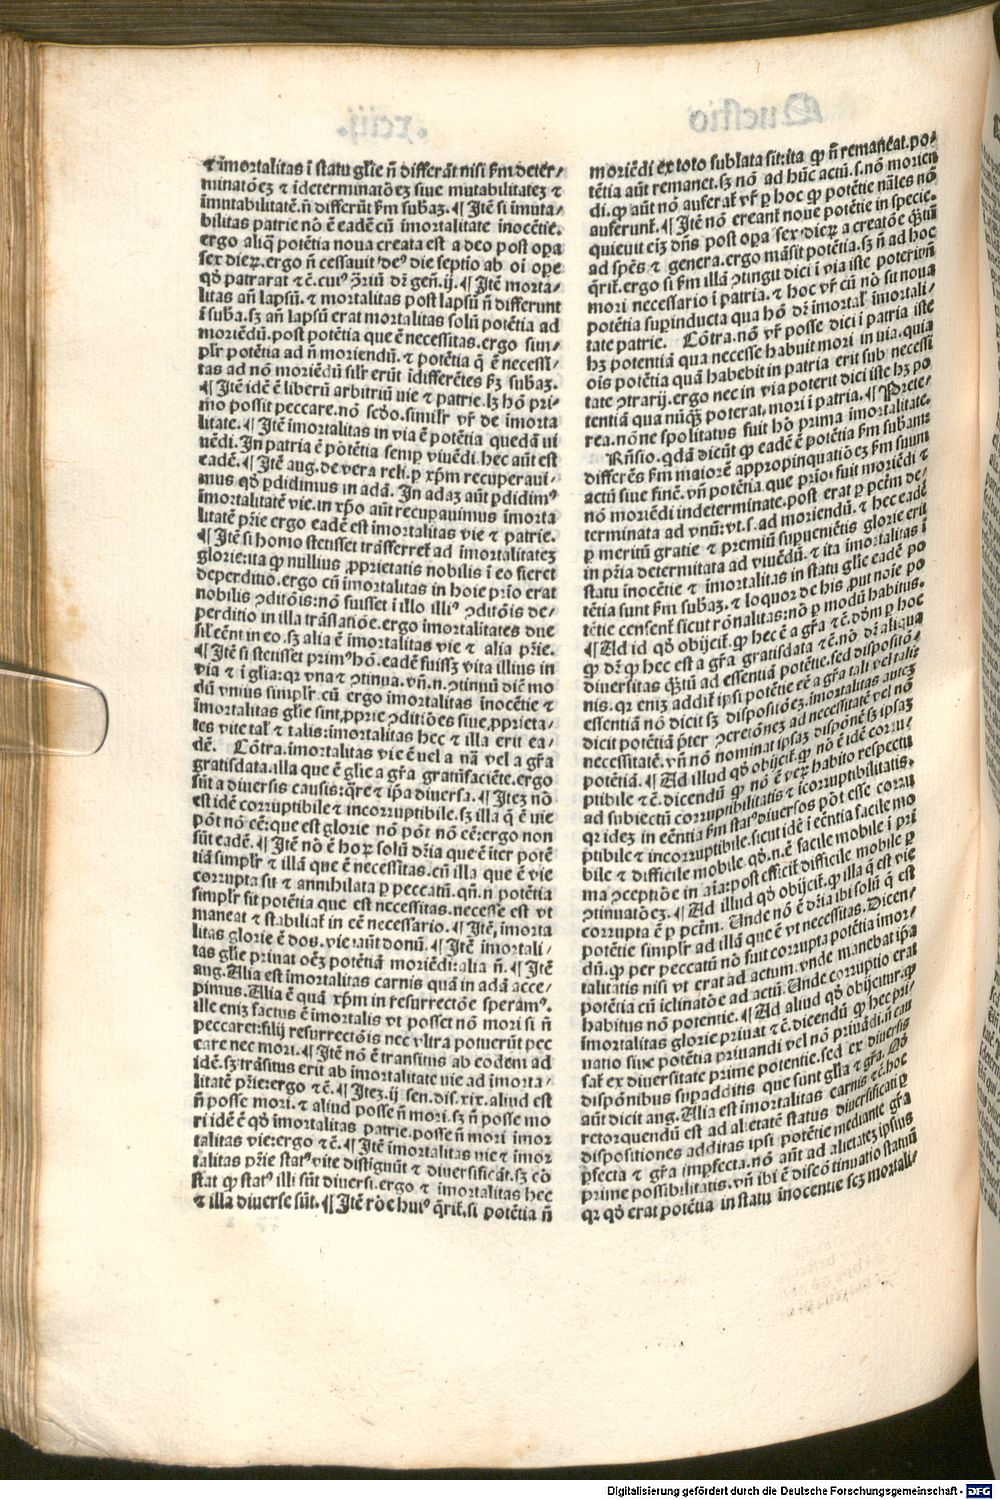 ⁊ īmortalitas ī statu glīe n̄ differāt nisi ẜm deter⸗
minatōeꝫ ⁊ īdeterminatōeꝫ siue mutabilitateꝫ ⁊
īmutabilitatē. n̄ differūt ẜm subaꝫ. ¶ Itē si imuta⸗
bilitas patrie nō ē eadē cū īmortalitate inocētie.
ergo aliq̄ potētia noua creata est a deo post opa
sex dieꝝ. ergo n̄ cessauit deꝰ die septio ab oī ope
qd̓ patrarat ⁊ c̄. cuiꝰ ꝯriū dr̄ gen̄. ij. ¶ Itē morta⸗
litas an̄ lapsū. ⁊ mortalitas post lapsū n̄ differunt
ī suba. sꝫ an̄ lapsū erat mortalitas solū potētia ad
moriēdū. post potētia que ē necessitas. ergo sim⸗
plr̄ potētia ad n̄ moriendū. ⁊ potētia q̄ ē necessi⸗
tas ad nō moriēdū silr̄ erūt īdifferētes ẜꝫ subaꝫ.
¶ Itē idē ē liberū arbitriū vie ⁊ patrie. lꝫ hō pri⸗
mo possit peccare. nō scd̓o. similr̄ vr̄ de īmorta
litate. ¶ Itē īmortalitas in via ē potētia quedā vi
uēdi. In patria ē potētia semp viuēdi. hec aūt est
eadē. ¶ Itē aug. de vera reli. p xp̄m recuperaui⸗
mus qd̓ pdidimus in adā. In adaꝫ aūt pdidimꝰ
īmortalitatē vie. in xp̄o aūt recupauimus īmorta
litatē pr̄ie ergo eadē est īmortalitas vie ⁊ patrie.
¶ Itē si homo stetisset trāsferret̄ ad īmortalitateꝫ
glorie: ita ꝙ nullius ꝓprietatis nobilis ī eo fieret
deperditio. ergo cū īmortalitas in hoīe pr̄io erat
nobilis ꝯditōis: nō fuisset ī illo illiꝰ ꝯditōis de⸗
perditio in illa trāslatiōe. ergo īmortalitates due
sil̓ eēnt in eo. sꝫ alia ē īmortalitas vie ⁊ alia pr̄ie.
¶ Itē si stetisset primꝰ hō. eadē fuissꝫ vita illius in
via ⁊ ī glīa: qꝛ vna ⁊ ꝯtinua. vn̄. n. ꝯtinuū dic̄ mo
dū vnius simplr̄. cū ergo īmortalitas inocētie ⁊
īmortalitas glīe sint ꝓprie ꝯditiōes siue ꝓprieta⸗
tes vite tal̓ ⁊ talis: īmortalitas hec ⁊ illa erit ea⸗
dē. Cōtra. īmortalitas vie ē vel a nā vel a gr̄a
gratisdata. illa que ē glīe a gr̄a gratūfaciēte. ergo
sūt a diuersis causis: qr̄e ⁊ ip̄a diuersa. ¶ Iteꝫ nō
est idē corruptibile ⁊ incorruptibile. sꝫ illa q̄ ē vie
pōt nō eē: que est glorie nō pōt nō eē: ergo non
sūt eadē. ¶ Itē nō ē hoꝝ solū dr̄ia que ē īter potē
tiā simplr̄ ⁊ illā que ē necessitas. cū illa que ē vie
corrupta sit ⁊ annihilata p peccatū. qn̄. n potētia
simplr̄ sit potētia que est necessitas. necesse est vt
maneat ⁊ stabiliat̄ in eē necessario. ¶ Itē, īmorta
litas glorie ē dos. vie aūt donū. ¶ Itē īmortali⸗
tas glīe priuat oēꝫ potētiā moriēdi: alia n̄. ¶ Itē
aug. Alia est īmortalitas carnis quā in adā acce⸗
pimus. Alia ē quā xp̄m in resurrectōe speramꝰ.
ille eniꝫ factus ē īmortalis vt posset nō mori si n̄
peccaret: filij resurrectōis nec vltra poterūt pec
care nec mori. ¶ Itē nō ē transitus ab eodem ad
idē. sꝫ trāsitus erit ab īmortalitate vie ad īmorta⸗
litatē pr̄ie: ergo ⁊ c̄. ¶ Iteꝫ. ij sen. dis. xix. aliud est
n̄ posse mori. ⁊ aliud posse n̄ mori. sꝫ n̄ posse mo
ri idē ē qd̓ īmortalitas patrie. posse n̄ mori īmor
talitas vie: ergo ⁊ c̄. ¶ Itē īmortalitas vie ⁊ īmor
talitas pr̄ie statꝰ vite distiguūt ⁊ diuersificāt. sꝫ cō
stat ꝙ statꝰ illi sūt diuersi. ergo ⁊ īmortalitas hec
⁊ illa diuerse sūt. ¶ Itē rōe huiꝰ q̄rit̄. si potētia n̄
moriēdi ex toto sublata sit: ita ꝙ n̄ remaneat. po⸗
tētia aūt remanet. sꝫ nō ad hūc actū. s. nō morien
di. ꝙ aūt nō auferat̄ vr̄ p hoc ꝙ potētie nāles nō
auferunt̄. ¶ Itē nō creant̄ noue potētie in specie.
quieuit eīꝫ dn̄s post opa sex dieꝝ a creatōe q̄ꝫtū
ad sp̄es ⁊ genera. ergo māsit potētia. sꝫ n̄ ad hoc
q̄rit̄. ergo si ẜm illā ꝯtingit dici ī via iste poterit n̄
mori necessario ī patria. ⁊ hoc vr̄ cū nō sit noua
potētia supinducta qua hō dr̄ īmortal̓ īmortali⸗
tate patrie. Cōtra. nō vr̄ posse dici ī patria iste
hꝫ potentiā qua necesse habuit mori in via. quia
oīs potētia quā habebit in patria erit sub necessi
tate ꝯtrarij. ergo nec in via poterit dici iste hꝫ po
tentiā qua nūq̄ꝫ poterat mori ī patria. ¶ Prete⸗
rea. nōne spoliatus fuit hō prima īmortalitate.
Rn̄sio. qdā dicūt ꝙ eadē ē potētia ẜm subam
differēs ẜm maiorē appropinquatiōeꝫ ẜm suum
actū siue finē. vn̄ potētia que prio fuit moriēdi ⁊
nō moriēdi indeterminate. post erat p pctm̄ de⸗
terminata ad vnū: vt. s. ad moriendū. ⁊ hec eadē
p meritū gratie ⁊ premiū supuenietis glorie erit
in pr̄ia determitata ad viuēdū. ⁊ ita īmortalitas ī
statu inocētie ⁊ īmortalitas in statu glīe eadē po
tētia sunt ẜm subaꝫ. ⁊ loquor de his ꝓut noīe po
tētie censent̄ sicut rōnalitas: nō p modū habitus.
¶ Ad id qd̓ obijcit̄. ꝙ hec ē a gr̄a ⁊ c̄. dōm p hoc
ꝙ dr̄ ꝙ hec est a gr̄a gratisdata ⁊ c̄. nō dr̄ aliqua
diuersitas q̄ꝫtū ad essentiā potētie. sed dispositō⸗
nis. qꝛ eniꝫ addit̄ ipsi potētie eē a gr̄a tali vel talit̄
essentiā nō dicit sꝫ dispositōeꝫ. īmortalitas auteꝫ
dicit potētiā pr̄ter ꝯcretōneꝫ ad necessitatē vel nō
necessitatē. vn̄ nō nominat ipsaꝫ dispōnē sꝫ ipsaꝫ
potētiā. ¶ Ad illud qd̓ obijcit̄. ꝙ nō ē idē corru⸗
ptibile ⁊ c̄. dicendū ꝙ nō ē veꝝ habito respectu
ad subiectū corruptibilitatis ⁊ icorruptibilitatis.
qꝛ ideꝫ in eēntia ẜm statꝰ diuersos pōt esse corru
ptibile ⁊ incorruptibile. sicut idē ī eēntia facile mo
bile ⁊ difficile mobile. qd̓. n. ē facile mobile ī pri
ma ꝯceptiōe in aīa: post efficit̄ difficile mobile p
ꝯtinuatōeꝫ. ¶ Ad illud qd̓ obijcit̄. ꝙ illa q̄ est vie
corrupta ē p pctm̄. Unde nō ē dr̄ia ibi solū q̄ est
potētie simplr̄ ad illā que ē vt necessitas. Dicen⸗
dū. ꝙ per peccatū nō fuit corrupta potētia īmor⸗
talitatis nisi vt erat ad actum. vnde manebat ip̄a
potētia cū īclinatōe ad actū. Unde corruptio erat
habitus nō potentie. ¶ Ad aliud qd̓ obijcitur. ꝙ
īmortalitas glorie priuat ⁊ c̄. dicendū ꝙ hec pri⸗
uatio siue potētia priuandi vel nō priuādi. n̄ cau
sat̄ ex diuersitate prime potentie. sed ex diuersis
dispōnibus supadditis que sunt glīa ⁊ gr̄a. Qd̓
aūt dicit aug. Alia est īmortalitas carnis ⁊ c̄. hoc
retorquendū est ad alietatē status diuersificati p
dispositiones additas ipsi potētie mediante gr̄a
pfecta ⁊ gr̄a impfecta. nō aūt ad alietatē ipsius
prime possibilitatis. vn̄ ibi ē discōtinuatio statuū
qꝛ qd̓ erat potētia in statu inocentie scꝫ mortali⸗
Digitalisierung gefördert durch die Deutsche Forschungsgemeinschaft - DFG